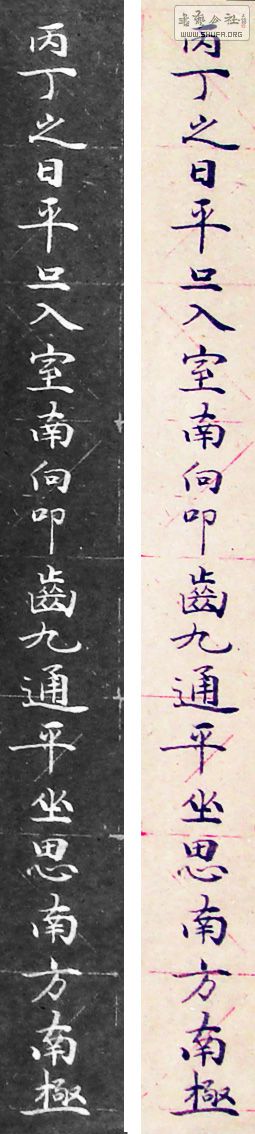 WWW.SHUFA.ORG
丙丁之日平旦入室南向叩齒九通平坐思南方南極
丙丁之日平旦入室南向叩齒九通平坐思南方南極